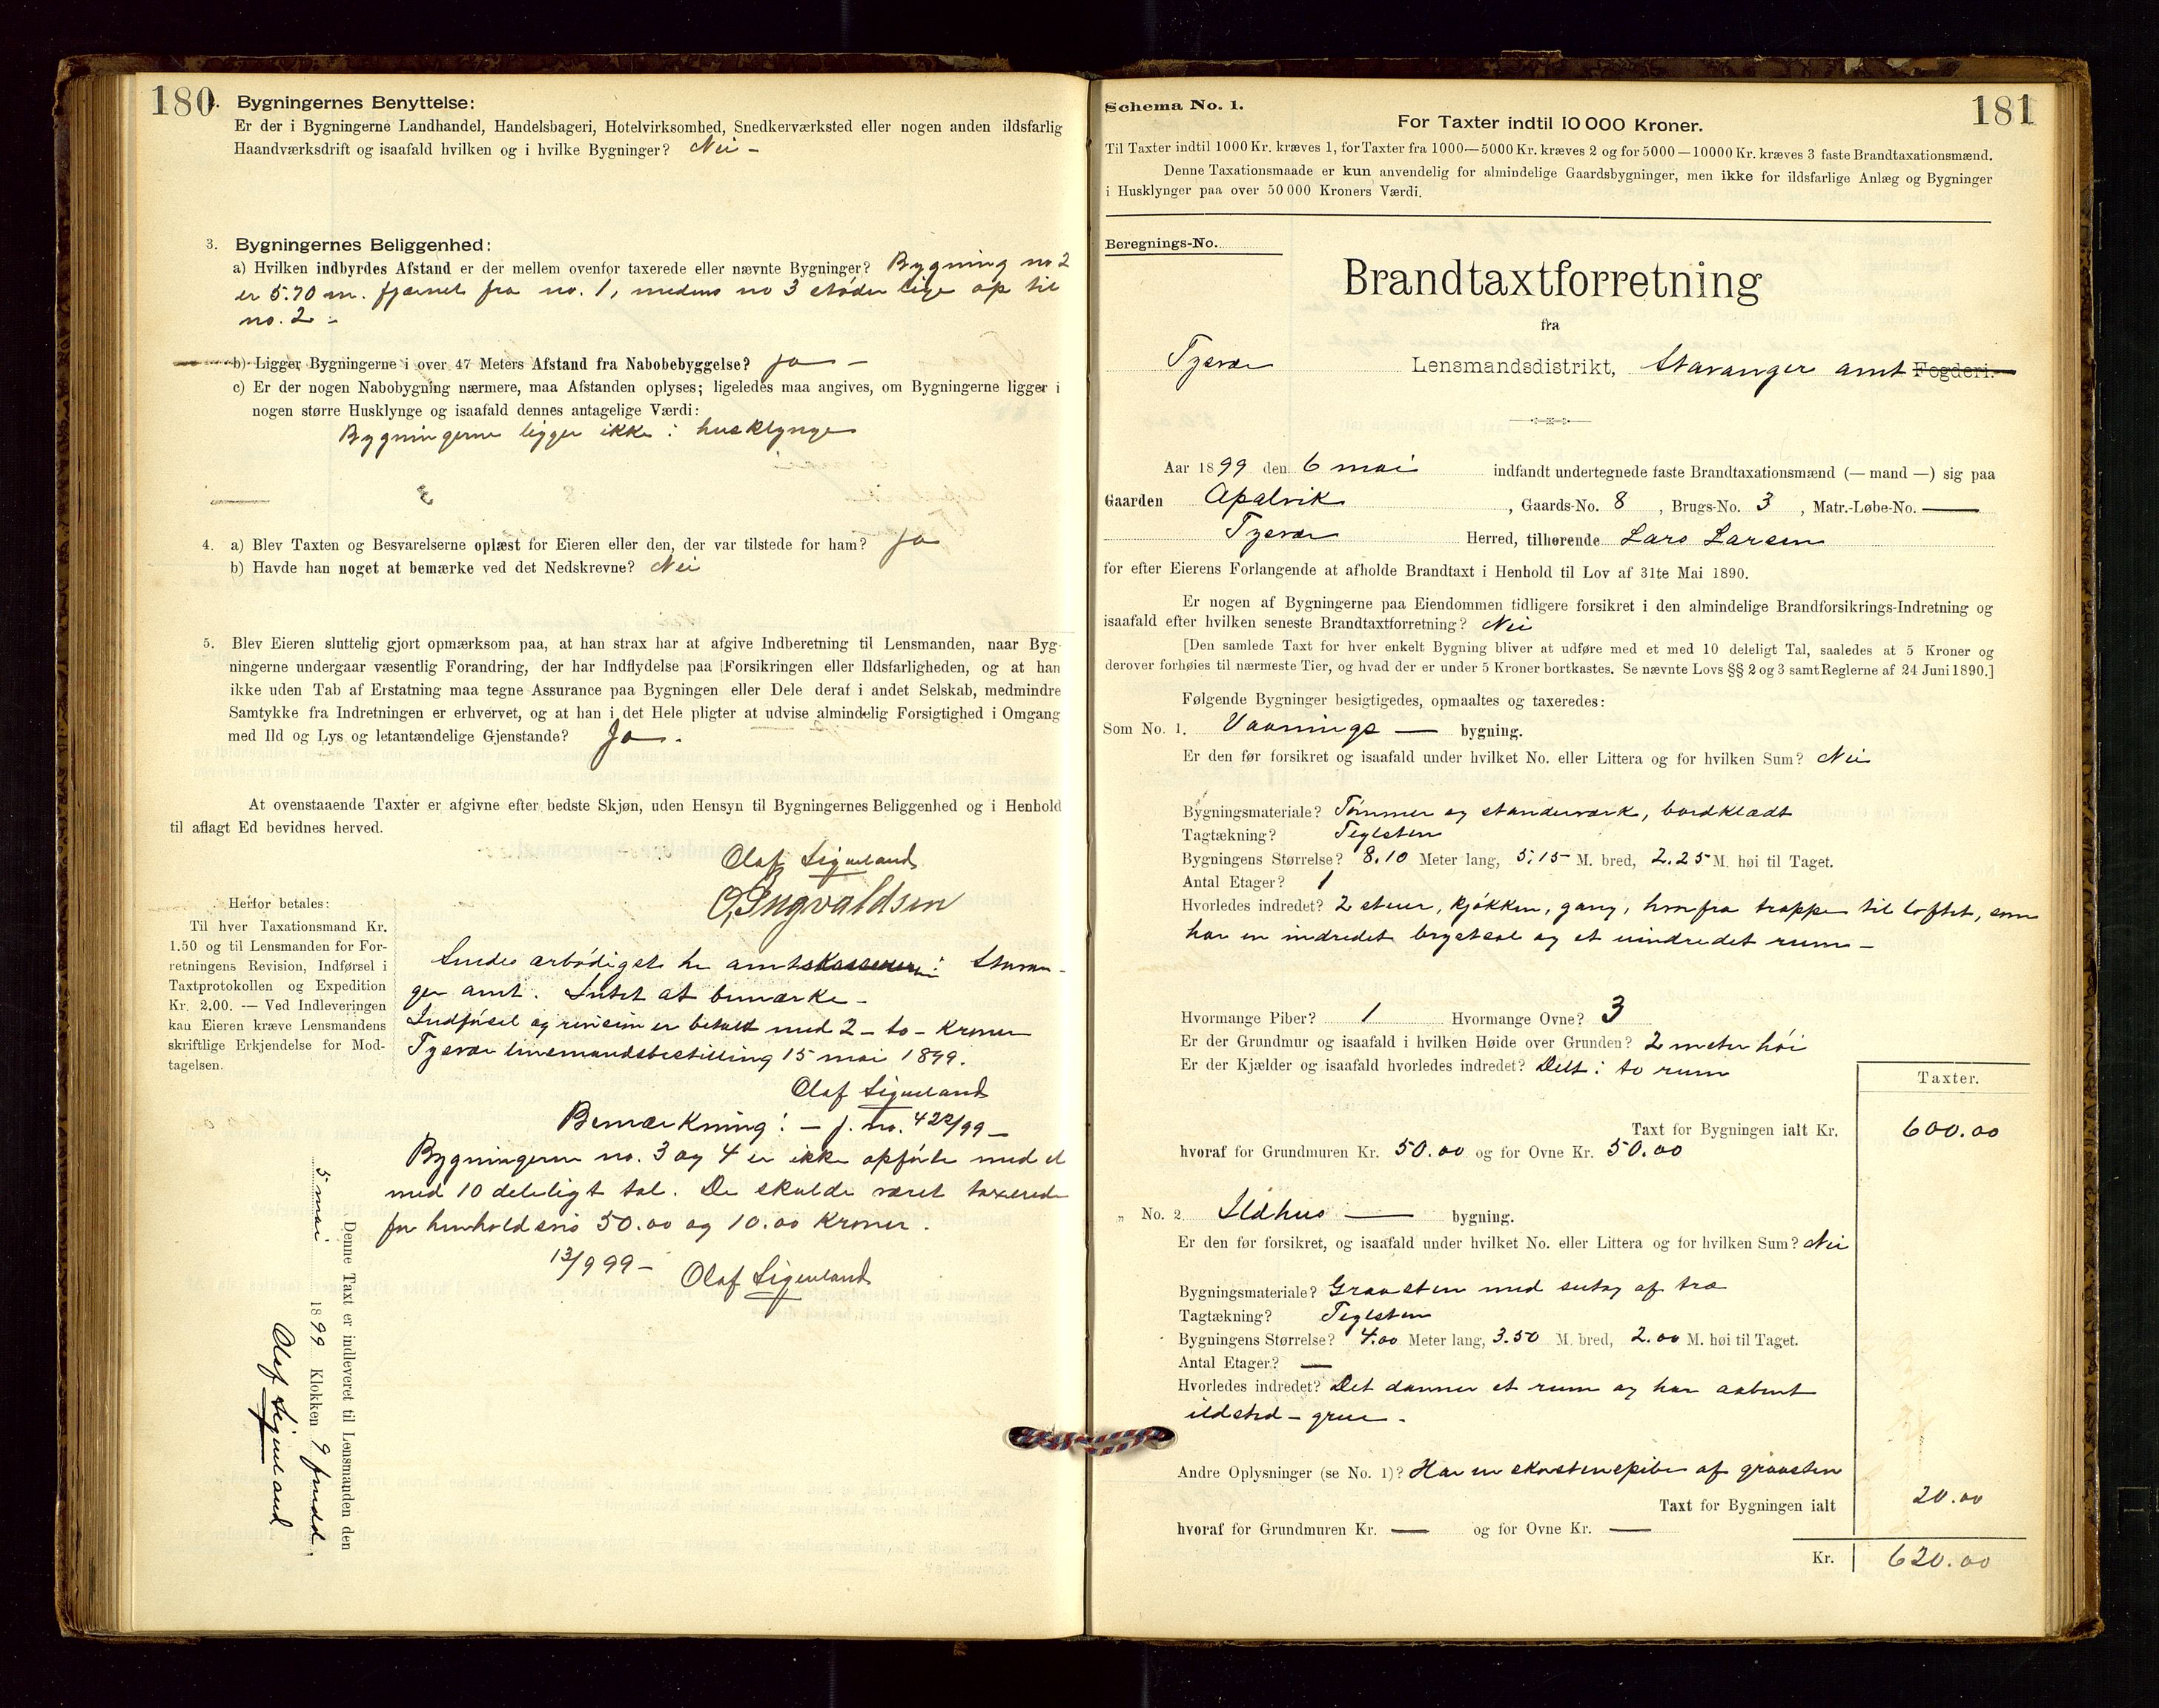 180
2. Bygningernes Benyttelse:
Er der i Bygningerne Landhandel, Handelsbageri, Hotelvirksomhed, Snedkerværksted eller nogen anden ildsfarlig
Haandværksdrift og isaafald hvilken og i hvilke Bygninger? Nei –
3. Bygningernes Beliggenhed:
a) Hvilken indbyrdes Afstand er der mellem ovenfor taxerede eller nævnte Bygninger? Bygning no 2
er 5.70 m. fjernet fra no. 1, medens no 3 støder lige op til
no. 2 –
b) Ligger Bygningerne i over 47 Meters Afstand fra Nabobebyggelse? Ja –
c) Er der nogen Nabobygning nærmere, maa Afstanden oplyses; ligeledes maa angives, om Bygningerne ligger i
nogen større Husklynge og isaafald dennes antagelige Værdi:
Bygningerne ligger ikke i husklynge
4. a) Blev Taxten og Besvarelserne oplæst for Eieren eller den, der var tilstede for ham? Ja
b) Havde han noget at bemærke ved det Nedskrevne? Nei
5. Blev Eieren sluttelig gjort opmærksom paa, at han strax har at afgive Indberetning til Lensmanden, naar Byg-
ningerne undergaar væsentlig Forandring, der har Indflydelse paa Forsikringen eller Ildsfarligheden, og at han
ikke uden Tab af Erstatning maa tegne Assurance paa Bygningen eller Dele deraf i andet Selskab, medmindre
Samtykke fra Indretningen er erhvervet, og at han i det Hele pligter at udvise almindelig Forsigtighed i Omgang
med Ild og Lys og letantændelige Gjenstande? Ja.
At ovenstaaende Taxter er afgivne efter bedste Skjøn, uden Hensyn til Bygningernes Beliggenhed og i Henhold
til aflagt Ed bevidnes herved.
Olaf Ligueland
O. Ingvaldsen
Herfor betales:
Til hver Taxationsmand Kr.
1.50 og til Lensmanden for For-
retningens Revision, Indførsel i
Taxtprotokollen og Expedition
Kr. 2.00. — Ved Indleveringen
kan Eieren kræve Lensmandens
skriftlige Erkjendelse for Mod-
tagelsen.
Sendes ærbødigst hr amtskasserer i Stavan-
ger amt. Intet at bemærke –
Indførsel og revision er betalt med 2 – to – Kroner
Tysvær lensmandsbestilling 15 mai 1899.
Olaf Ligueland
Bemærkning: – j. no. 422/99 –
Bygningerne no. 3 og 4 er ikke opførte med et
med 10 deleligt tal. De skulde været taxerede
for henholdsvis 50.00 og 10.00 Kroner.
13/9 99 – Olaf Ligueland
Denne Taxt er indleveret til Lensmanden den
5 mai 1899 Klokken 9 fmdd,
Olaf Ligueland
181
Schema No. 1.
For Taxter indtil 10 000 Kroner.
Til Taxter indtil 1000 Kr. kræves 1, for Taxter fra 1000—5000 Kr. kræves 2 og for 5000—10000 Kr. kræves 3 faste Brandtaxationsmænd.
Denne Taxationsmaade er kun anvendelig for almindelige Gaardsbygninger, men ikke for ildsfarlige Anlæg og Bygninger
i Husklynger paa over 50 000 Kroners Værdi.
Beregnings-No.
Brandtaxtforretning
fra
Tysvær Lensmandsdistrikt, Stavanger amt Fogderi.
Aar 1899 den 6 mai indfandt undertegnede faste Brandtaxationsmænd (— mand —) sig paa
Gaarden Apalvik, Gaards-No. 8, Brugs-No. 3, Matr.-Løbe-No. —
Tysvær Herred, tilhørende Lars Larsen
for efter Eierens Forlangende at afholde Brandtaxt i Henhold til Lov af 31te Mai 1890.
Er nogen af Bygningerne paa Eiendommen tidligere forsikret i den almindelige Brandforsikrings-Indretning og
isaafald efter hvilken seneste Brandtaxtforretning? Nei
[Den samlede Taxt for hver enkelt Bygning bliver at udføre med et med 10 deleligt Tal, saaledes at 5 Kroner og
derover forhøies til nærmeste Tier, og hvad der er under 5 Kroner bortkastes. Se nævnte Lovs §§ 2 og 3 samt Reglerne af 24 Juni 1890.]
Følgende Bygninger besigtigedes, opmaaltes og taxeredes:
Som No. 1. Vaanings — bygning.
Er den før forsikret og isaafald under hvilket No. eller Littera og for hvilken Sum? Nei
Bygningsmateriale? Tømmer og standerværk, bordklædt
Tagtækning? Teglsten
Bygningens Størrelse? 8.10 Meter lang, 5.15 M. bred, 2.25 M. høi til Taget.
Antal Etager? 1
Hvorledes indredet? 2 stuer, kjøkken, gang, hvorfra trappe til loftet, som
har en indredet brystsal og et uindredet rum –
Hvormange Piber? 1 Hvormange Ovne? 3
Er der Grundmur og isaafald i hvilken Høide over Grunden? 2 meter høi
Er der Kjælder og isaafald hvorledes indredet? Delt i to rum
Taxter.
Taxt for Bygningen ialt Kr. 600.00
hvoraf for Grundmuren Kr. 50.00 og for Ovne Kr. 50.00
„ No. 2. Ildhus — bygning.
Er den før forsikret, og isaafald under hvilket No. eller Littera og for hvilken Sum? Nei
Bygningsmateriale? Graasten med sutag af træ
Tagtækning? Teglsten
Bygningens Størrelse? 4.00 Meter lang, 3.50 M. bred, 2.00 M. høi til Taget.
Antal Etager? —
Hvorledes indredet? Det danner et rum og har aabent
ildsted – grue –
Andre Oplysninger (se No. 1)? Har en skorstenspibe af graasten
Taxt for Bygningen ialt 20.00
hvoraf for Grundmuren Kr. — og for Ovne Kr. —
Kr. 620.00